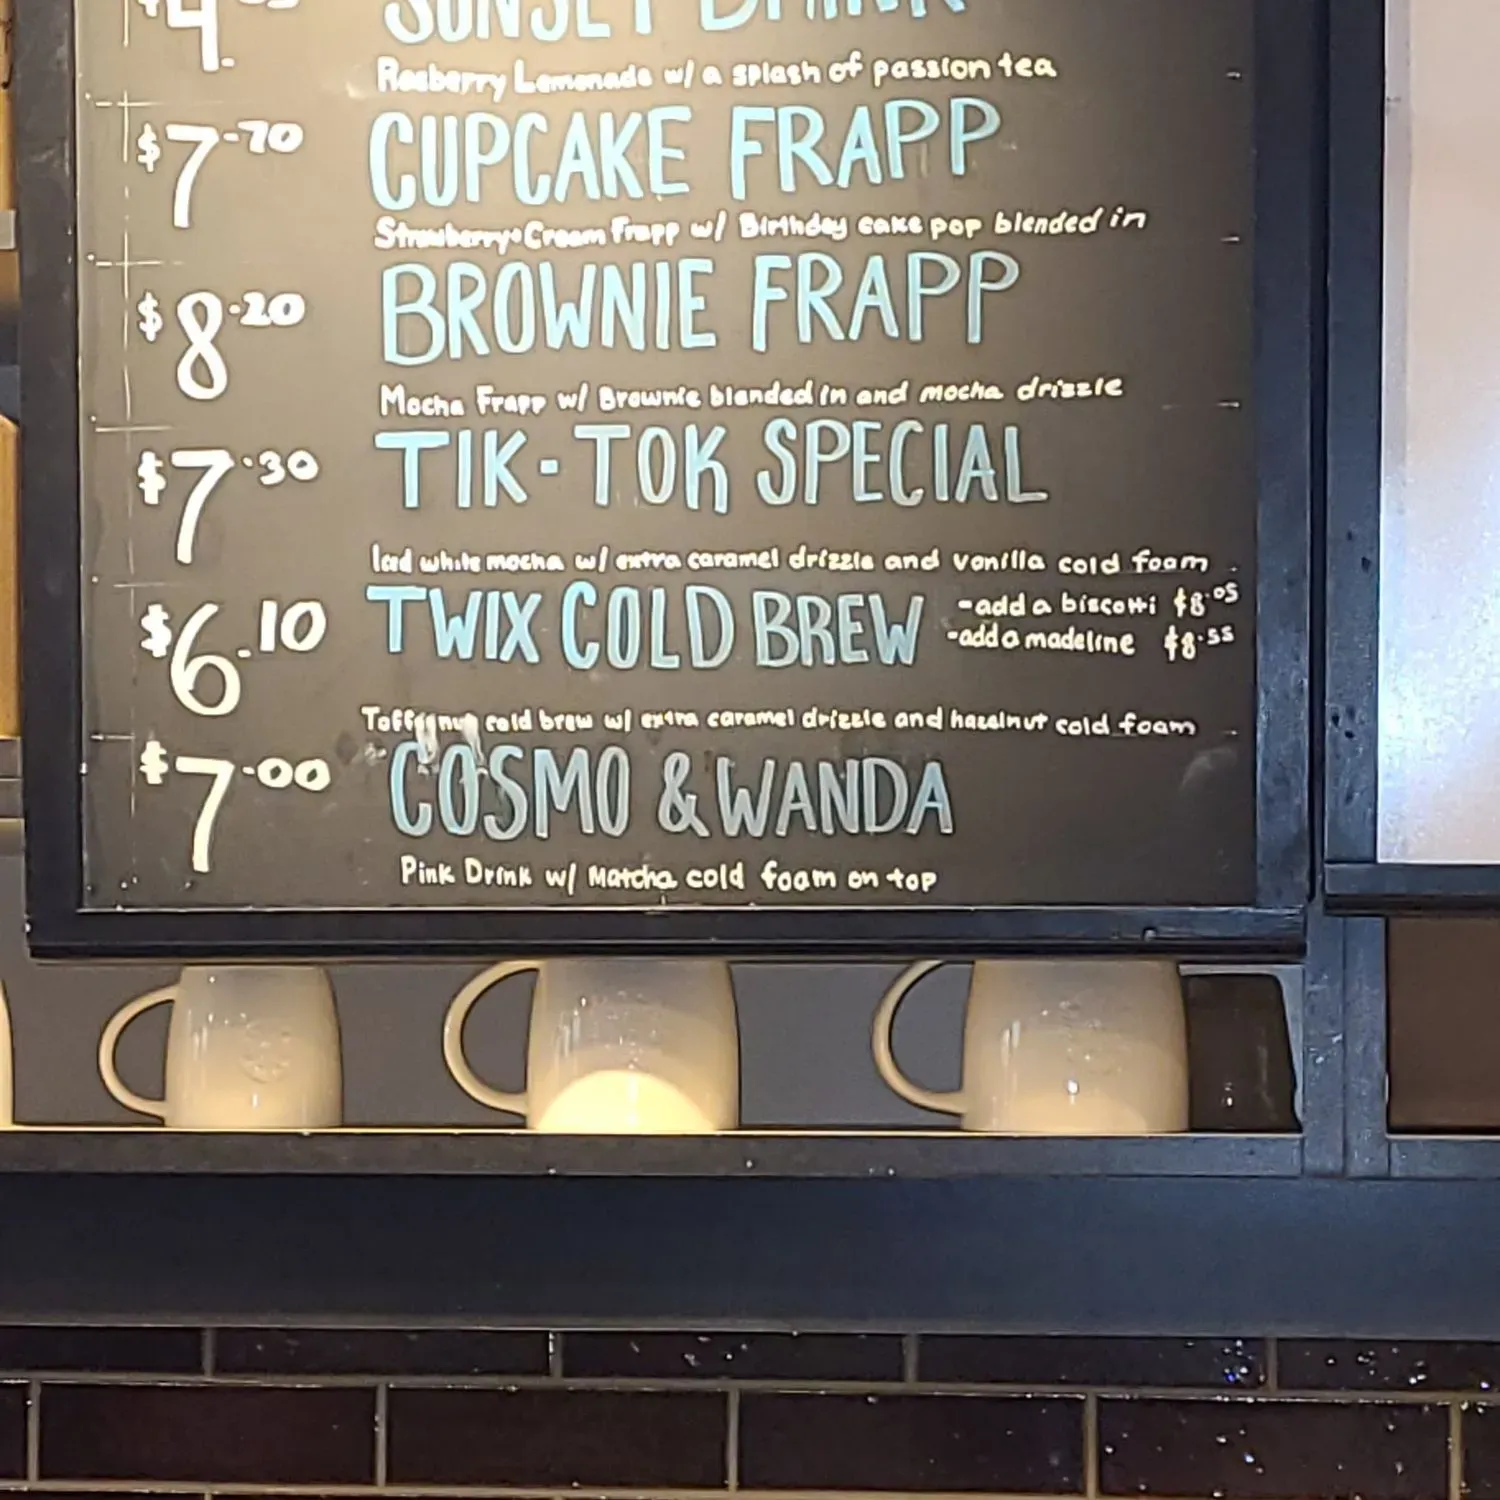 $4.
SUNSET DRINK
Rasberry Lemonade w/ a splash of passion tea
$7.70 CUPCAKE FRAPP
Strawberry+Cream Frapp w/ Birthday cake pop blended in
$8.20 BROWNIE FRAPP
Mocha Frapp w/ Brownie blended in and mocha drizzle
$7.30 TIK-TOK SPECIAL
Iced white mocha w/ extra caramel drizzle and vanilla cold foam
$6.10 TWIX COLD BREW -add a biscotti $8.05
-add a madeline $8.55
Toffeenut cold brew w/ extra caramel drizzle and hazelnut cold foam
$7.00 COSMO & WANDA
Pink Drink w/ Matcha cold foam on top